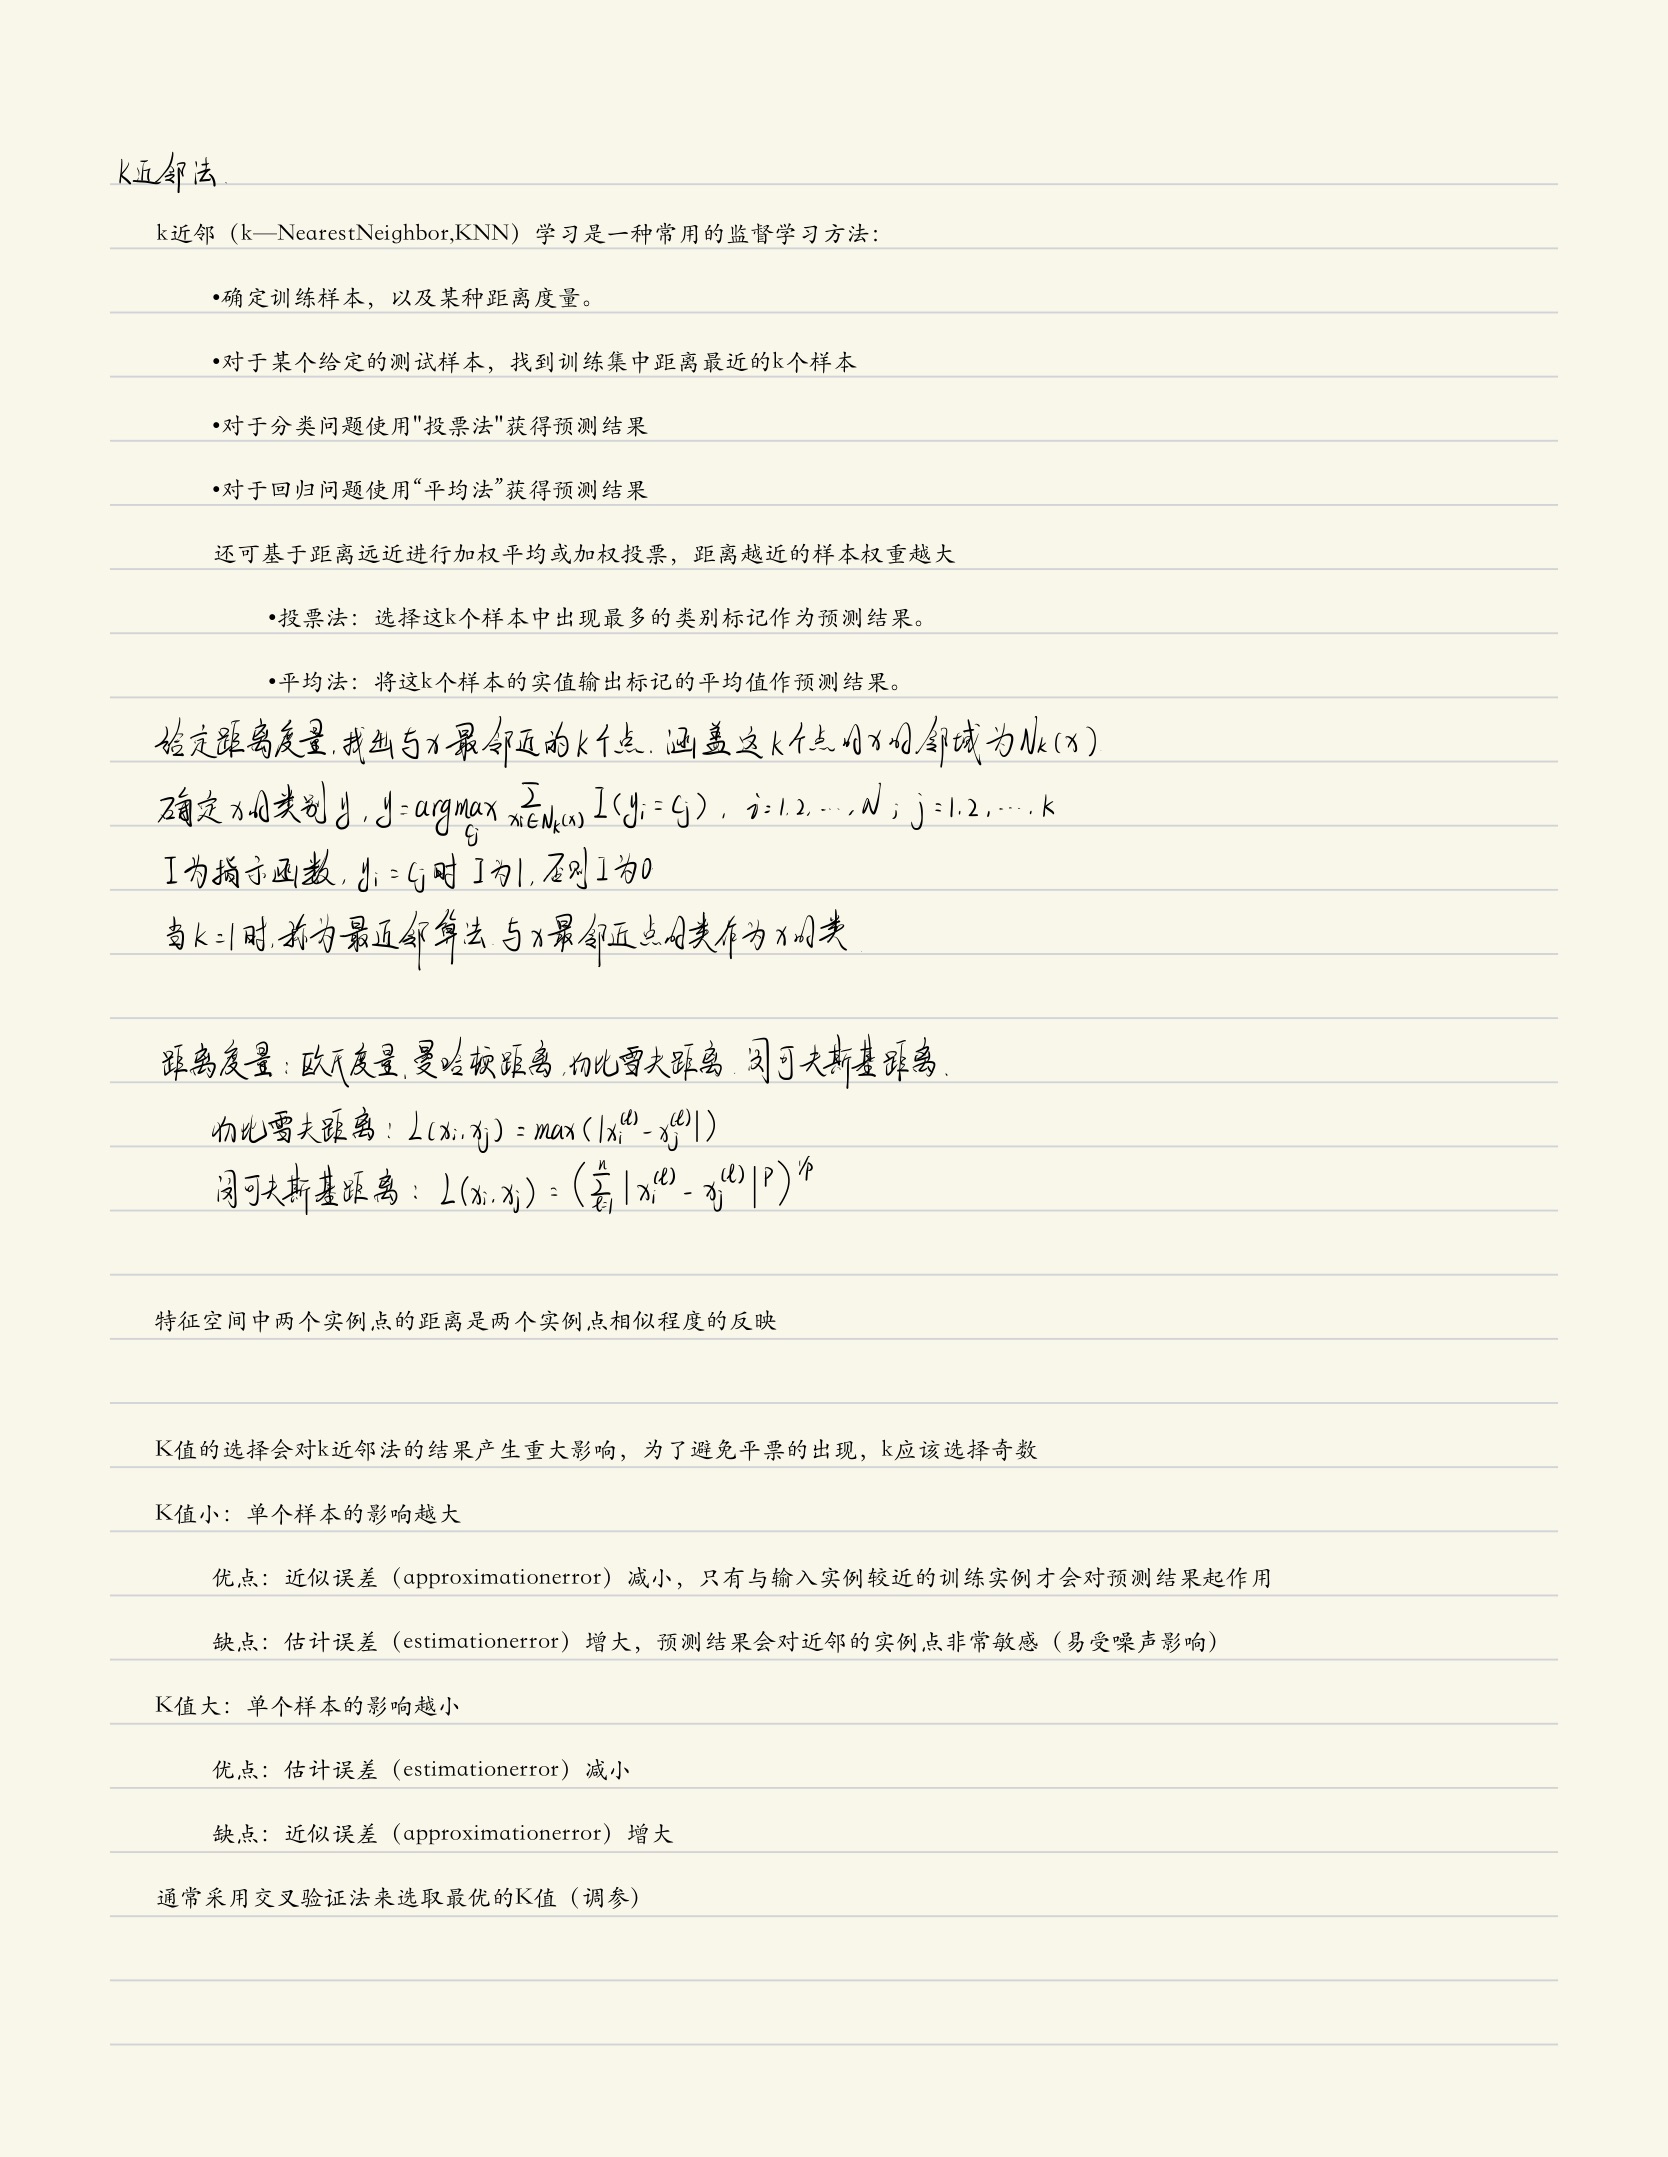 K近邻法.
k近邻（k—NearestNeighbor,KNN）学习是一种常用的监督学习方法：
•确定训练样本，以及某种距离度量。
•对于某个给定的测试样本，找到训练集中距离最近的k个样本
•对于分类问题使用"投票法"获得预测结果
•对于回归问题使用“平均法”获得预测结果
还可基于距离远近进行加权平均或加权投票，距离越近的样本权重越大
•投票法：选择这k个样本中出现最多的类别标记作为预测结果。
•平均法：将这k个样本的实值输出标记的平均值作预测结果。
给定距离度量,找出与x最邻近的k个点.涵盖这k个点的x的邻域为Nk(x)
确定x的类别y, y=argmax_{cj} Σ_{xi∈Nk(x)} I(yi=cj), i=1,2,…,N; j=1,2,…,k
I为指示函数, yi=cj时I为1,否则I为0
当k=1时,称为最近邻算法.与x最邻近点的类作为x的类.
距离度量:欧氏度量,曼哈顿距离,切比雪夫距离.闵可夫斯基距离.
切比雪夫距离: L(xi,xj)=max(|xi^(l)-xj^(l)|)
闵可夫斯基距离: L(xi,xj)=(Σ_{l=1}^{n}|xi^(l)-xj^(l)|^p)^{1/p}
特征空间中两个实例点的距离是两个实例点相似程度的反映
K值的选择会对k近邻法的结果产生重大影响，为了避免平票的出现，k应该选择奇数
K值小：单个样本的影响越大
优点：近似误差（approximationerror）减小，只有与输入实例较近的训练实例才会对预测结果起作用
缺点：估计误差（estimationerror）增大，预测结果会对近邻的实例点非常敏感（易受噪声影响）
K值大：单个样本的影响越小
优点：估计误差（estimationerror）减小
缺点：近似误差（approximationerror）增大
通常采用交叉验证法来选取最优的K值（调参）